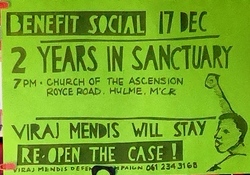 BENEFIT SOCIAL 17 DEC
2 YEARS IN SANCTUARY
7PM • CHURCH OF THE ASCENSION
ROYCE ROAD, HULME, M'CR
VIRAJ MENDIS WILL STAY
RE-OPEN THE CASE!
VIRAJ MENDIS DEFENCE CAMPAIGN 061 234 3168